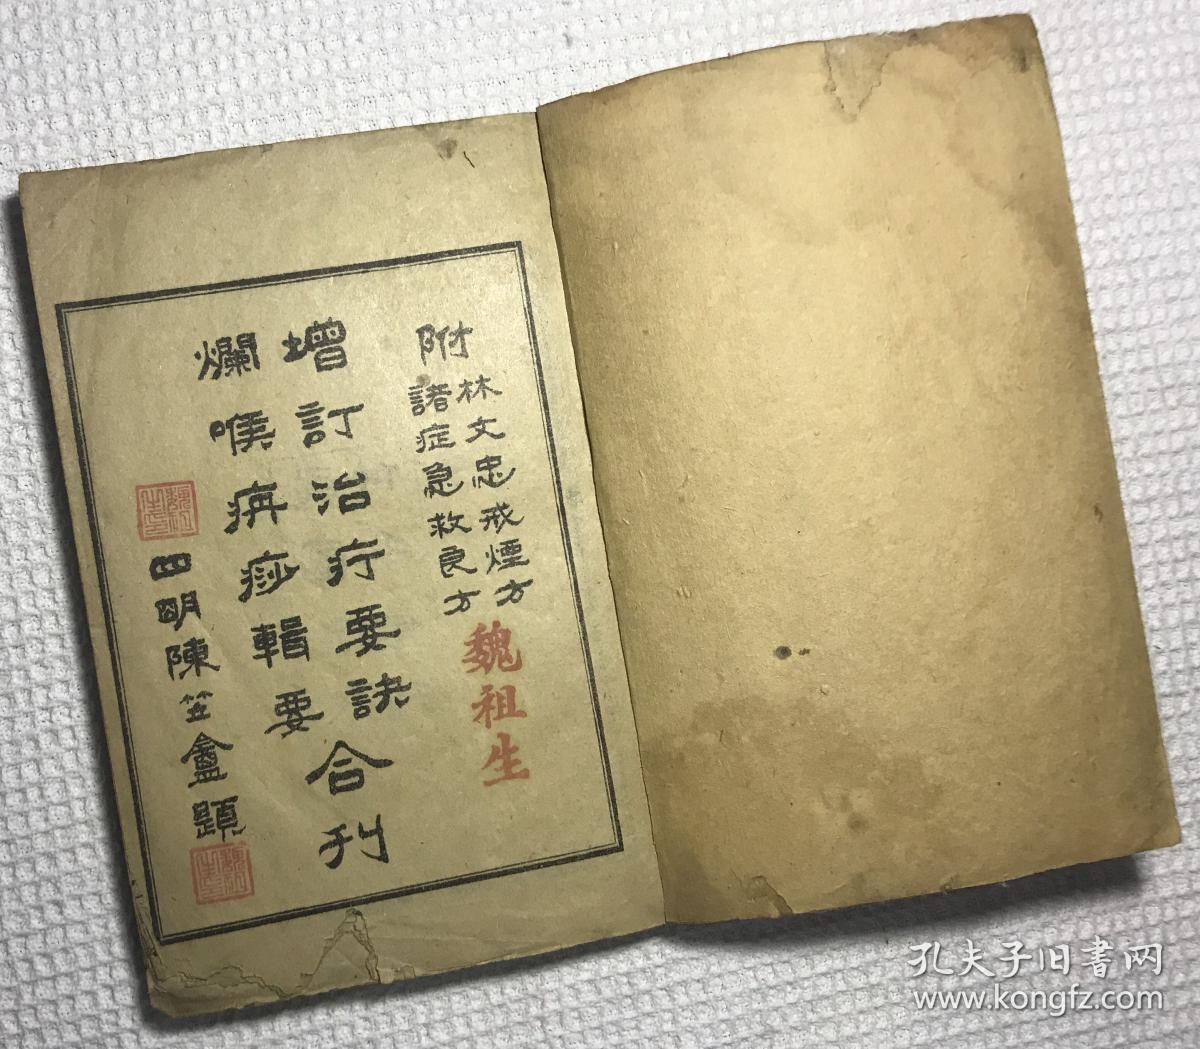 附
林文忠戒煙方
諸症急救良方
魏祖生
增訂治疔要訣合刊
爛喉痹痧輯要
四明陳笠盦題
孔夫子旧书网
www.kongfz.com